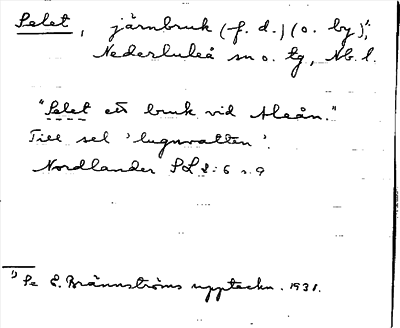 Selet, järnbruk (f. d.) (o. by)¹⁾,
Nederluleå sn o. tg, Nb. l.
"Selet ett bruk vid Aleån."
Till sel 'lugnvatten'.
Nordlander SL 2:6 s. 9
¹⁾ Se E. Brännströms uppteckn. 1931.